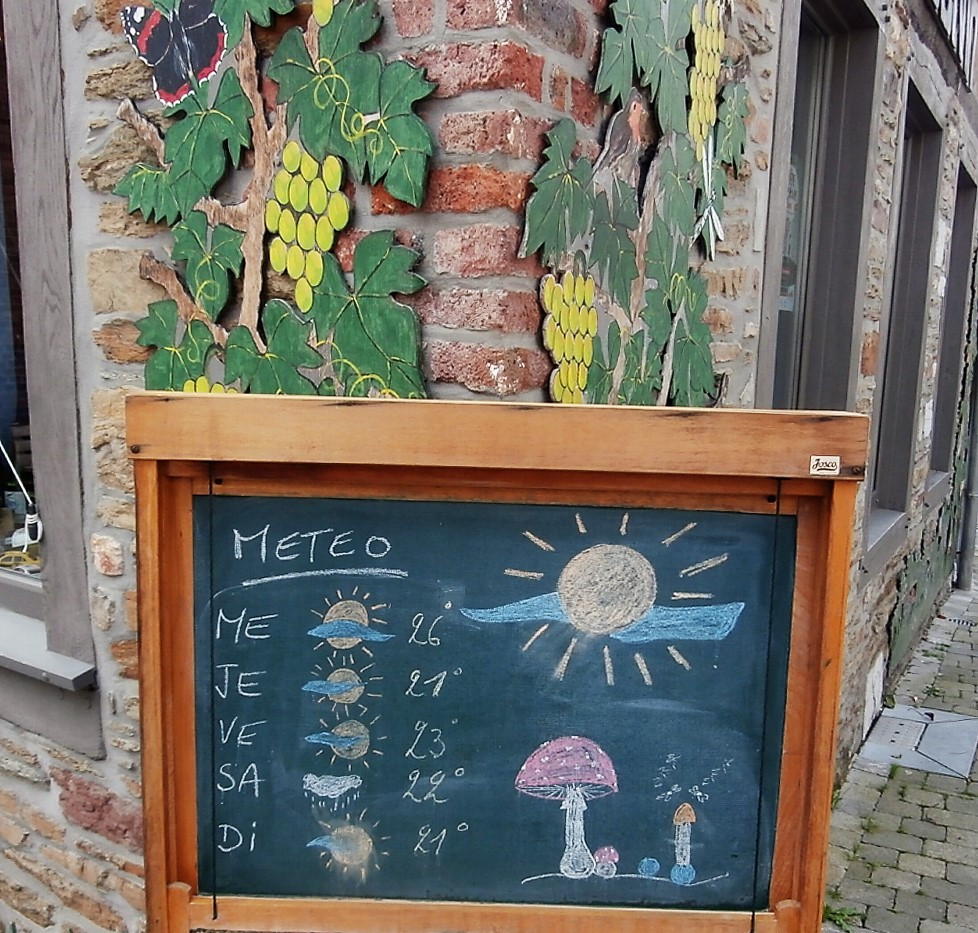 Josco
METEO
ME 26°
JE 21°
VE 23°
SA 22°
Di 21°